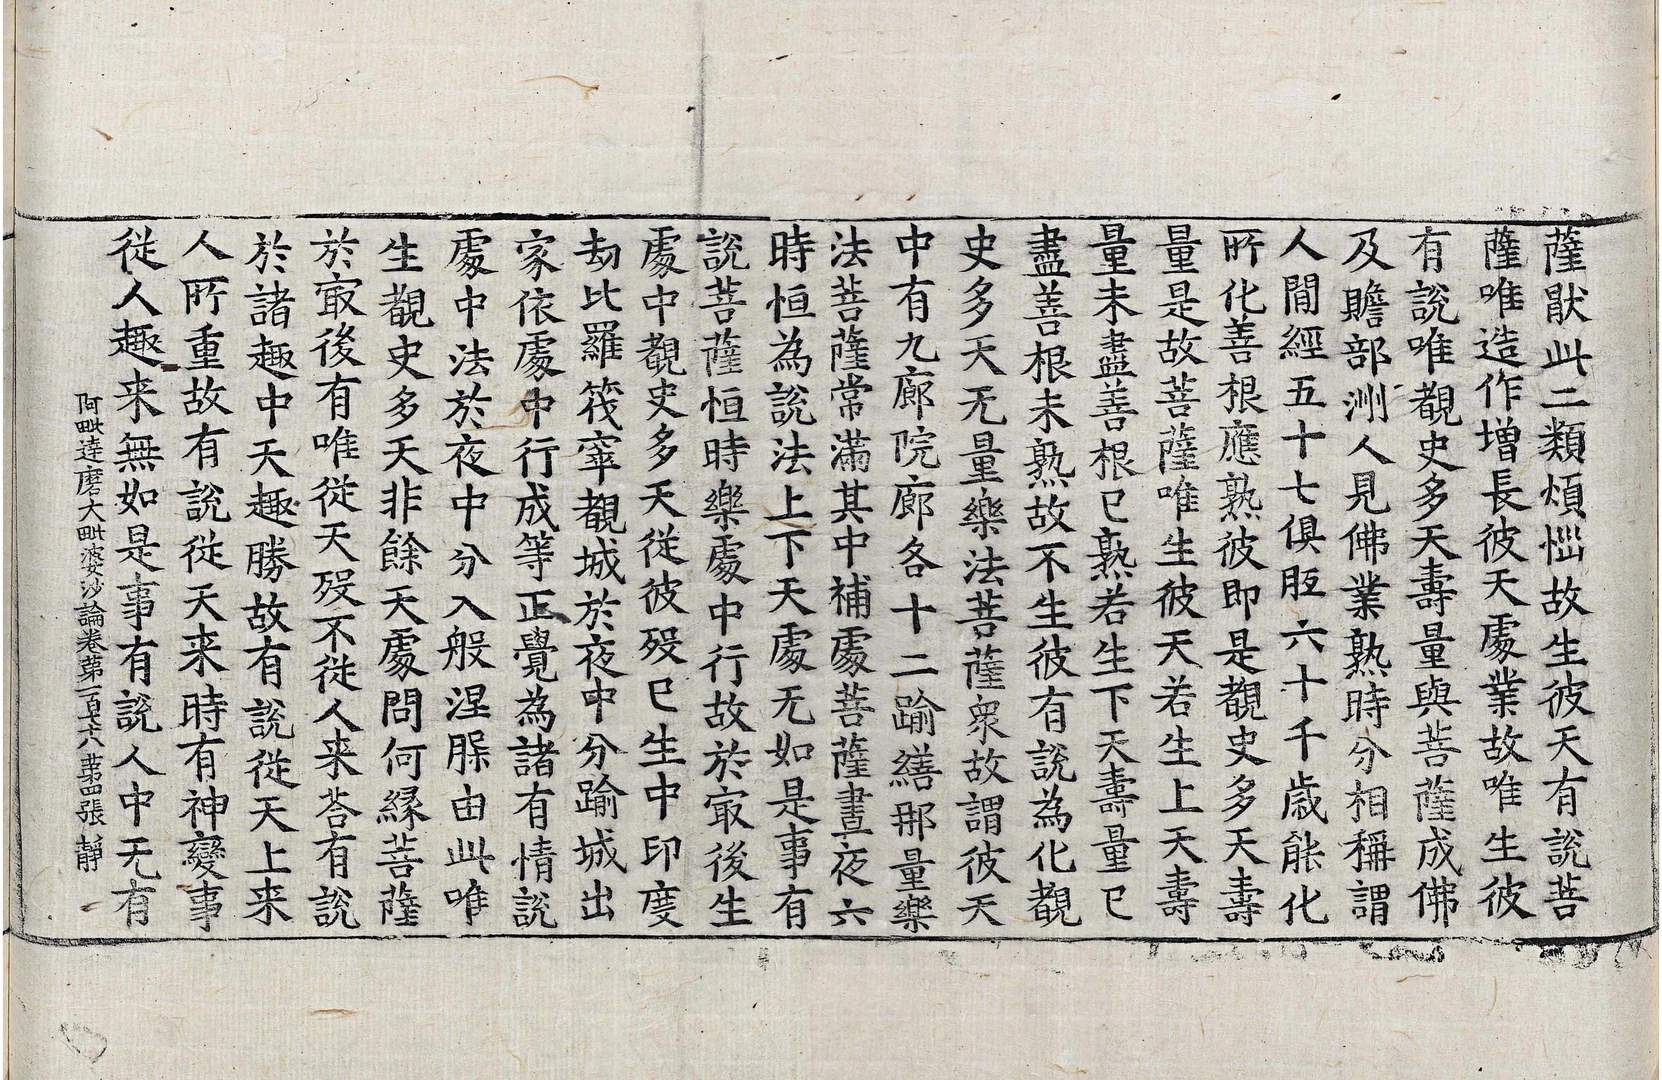 薩猒此二類煩惱故生彼天有說菩
薩唯造作增長彼天處業故唯生彼
有說唯覩史多天壽量與菩薩成佛
及贍部洲人見佛業熟時分相稱謂
人閒經五十七俱胝六十千歲能化
所化善根應熟彼即是覩史多天壽
量是故菩薩唯生彼天若生上天壽
量未盡善根已熟若生下天壽量已
盡善根未熟故不生彼有說為化覩
史多天无量樂法菩薩衆故謂彼天
中有九廊院廊各十二踰繕那量樂
法菩薩常滿其中補處菩薩晝夜六
時恒為說法上下天處无如是事有
說菩薩恒時樂處中行故於㝡後生
處中覩史多天從彼歿已生中印度
劫比羅筏窣覩城於夜中分踰城出
家依處中行成等正覺為諸有情說
處中法於夜中分入般涅脲由此唯
生覩史多天非餘天處問何緣菩薩
於㝡後有唯從天歿不從人来荅有說
於諸趣中天趣勝故有說從天上来
人所重故有說從天来時有神變事
從人趣来無如是事有說人中无有
阿毗達磨大毗婆沙論卷第一百七十八 第四張 靜